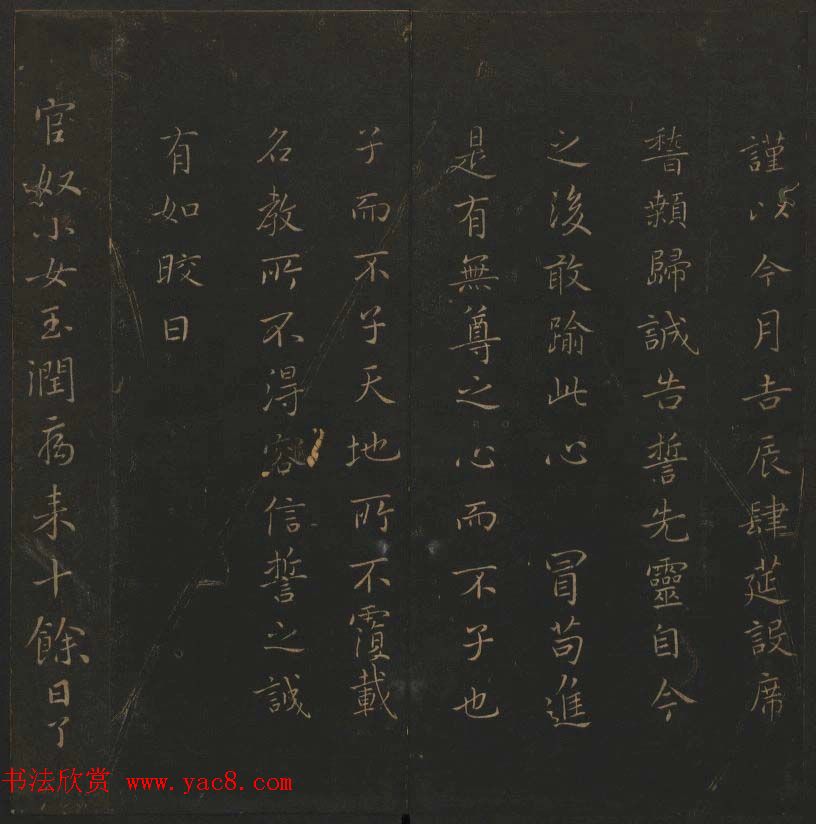 謹以今月吉辰肆莚設席
稽顙歸誠告誓先靈自今
之後敢踰此心 冒苟進
是有無尊之心而不子也
子而不子天地所不覆載
名教所不得容信誓之誠
有如皎日
官奴小女玉潤病来十餘日了
书法欣赏 www.yac8.com